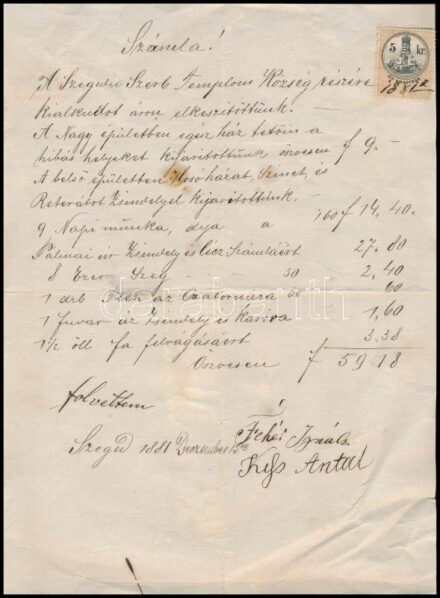 Számla!
5 kr.
A Szegedi Szerb Templom Község részére
kialkudot áron elkészitöttünk.
A Nagy épületben egész ház tetöin a
hibás helyeket kijavitottunk öszvesen f 9.-
A belső épületben Mosóházat, Szinet, és
Reterátot Zsindelyel kijavitottunk.
9 Napi munka, dija a 160 f 14,40.
Pálmai úr Zsindely és lécz Számláért 27.80
8 Ezer Szeg - 30 2,40
1 drb Pleh az Czatornára 60 60
1 Fuvar az Zsindely és karóra 1,60
1½ öll fa felvágásáért 3.38
Öszvesen f 59 18
darabanth
folvettem
Szeged 1881 December
Fehér Ignátz
Kiss Antal